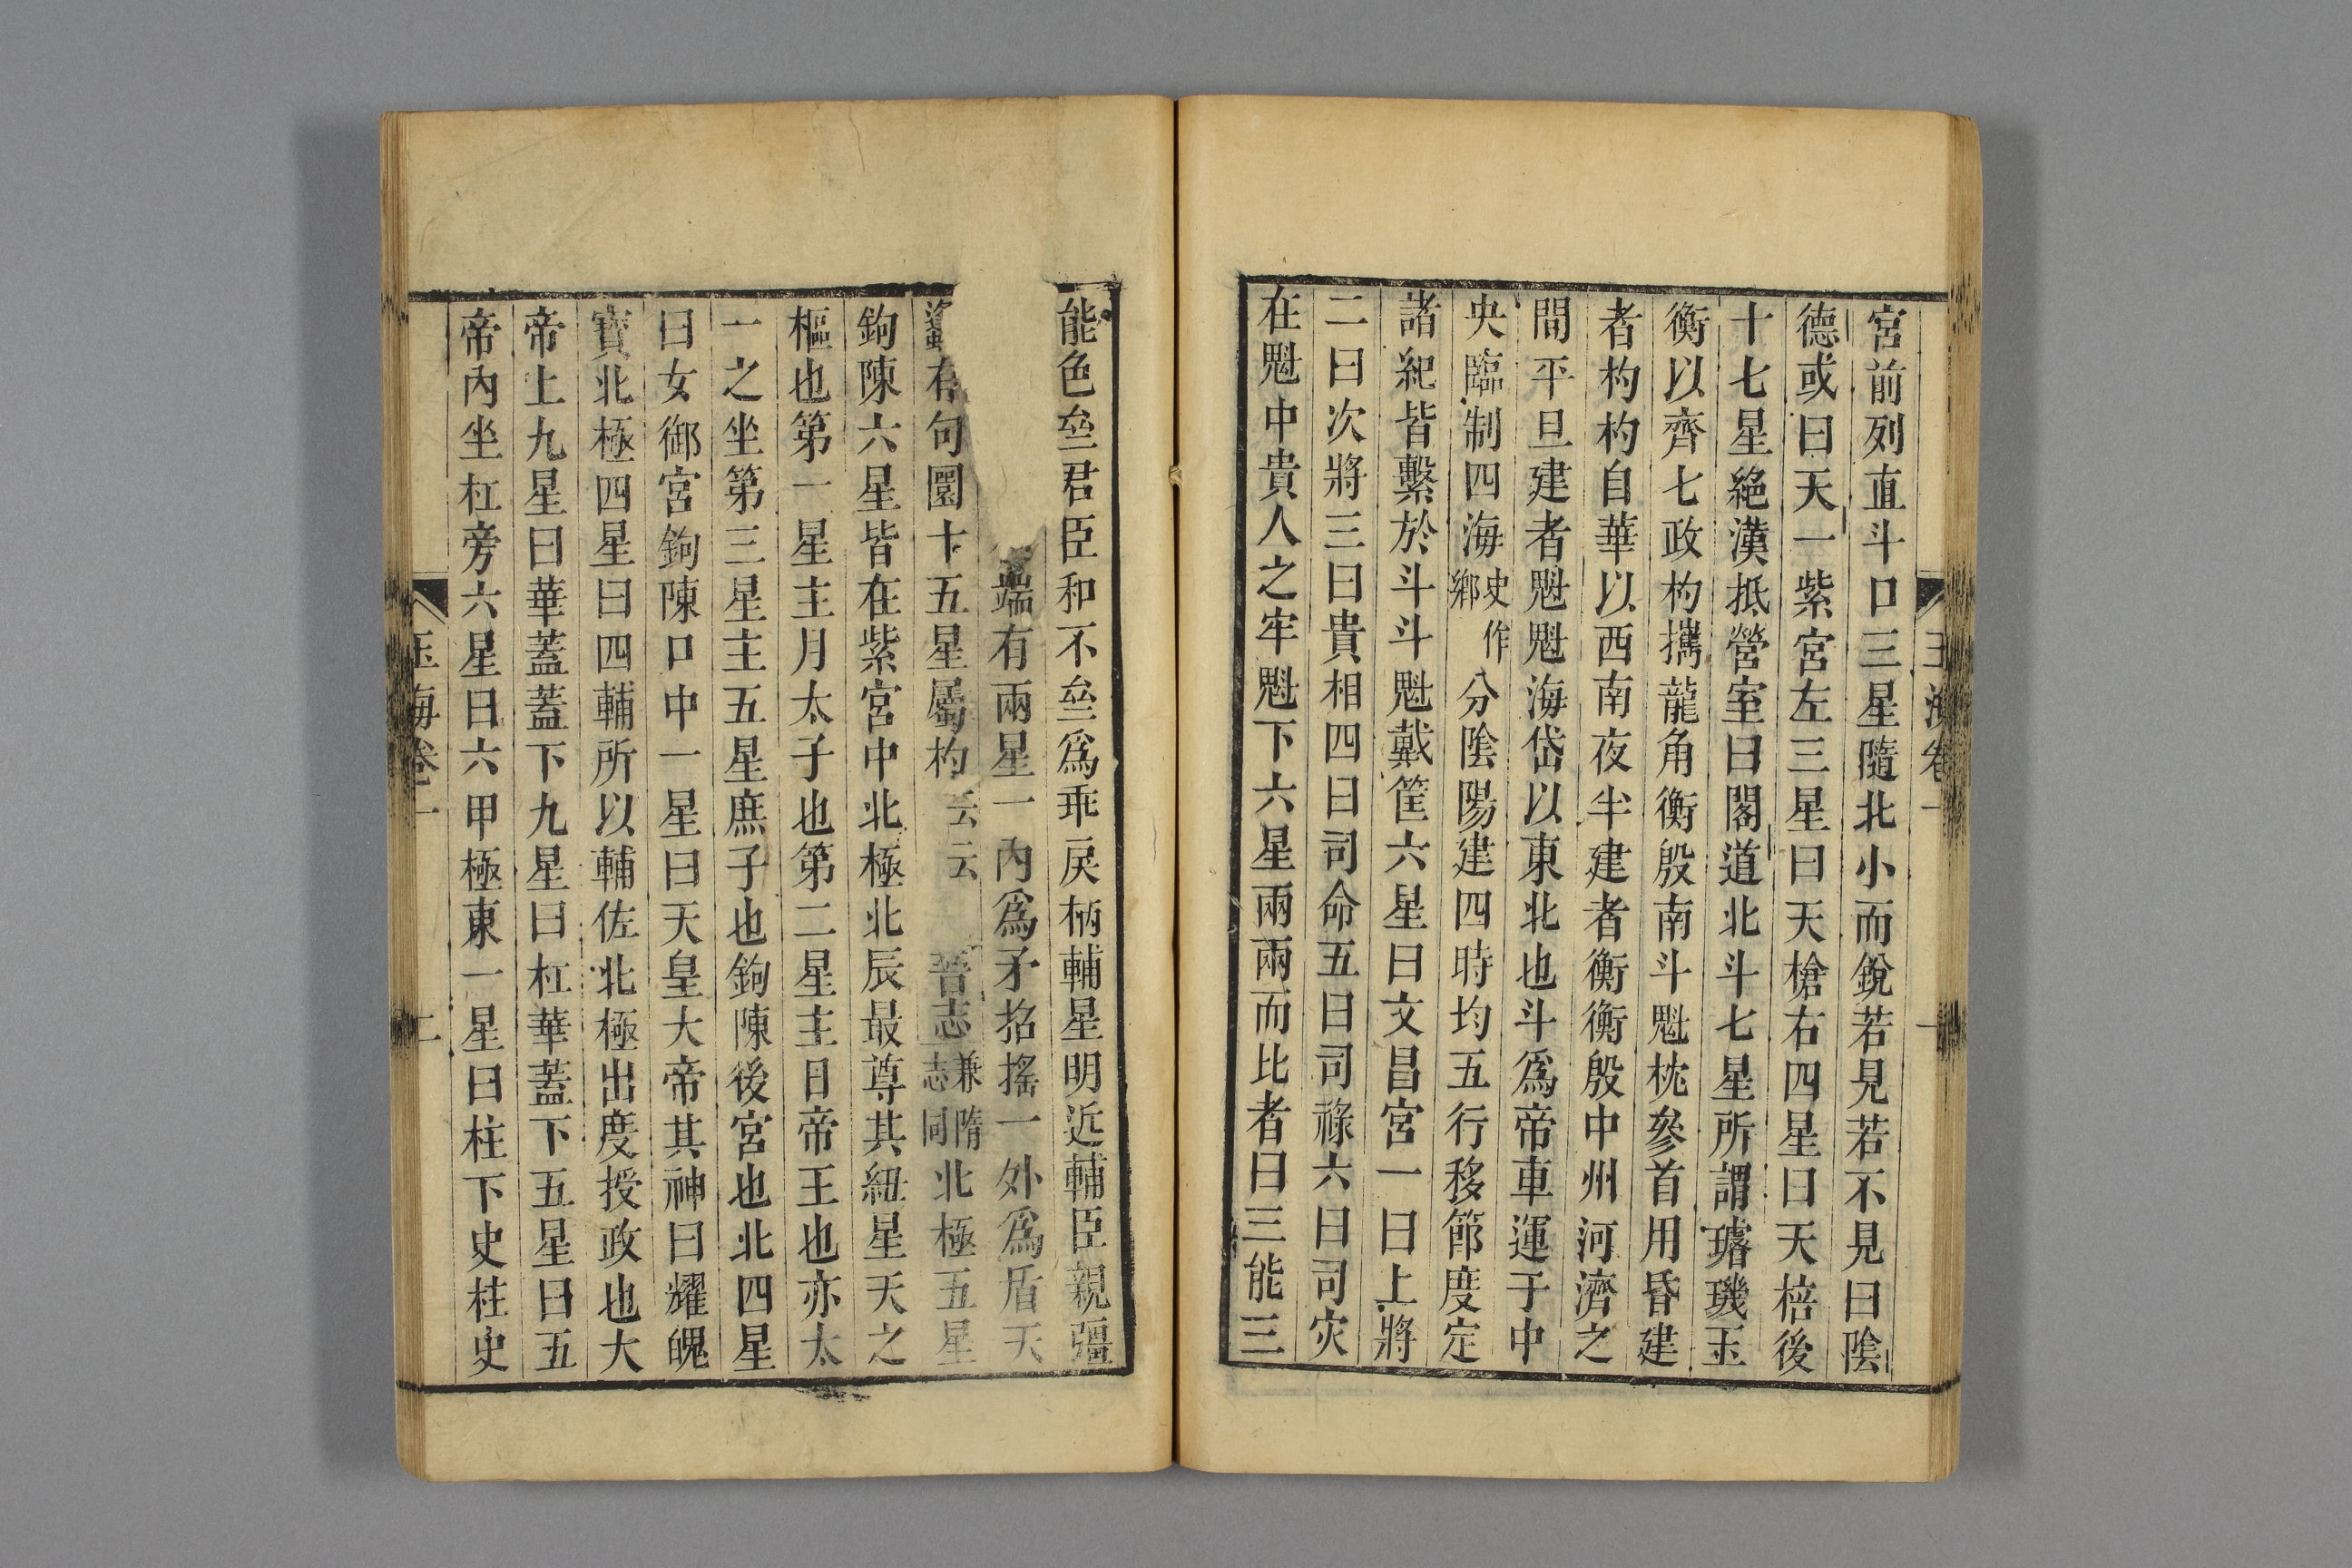 宮前列直斗口三星隨北小而銳若見若不見曰陰
德或曰天一紫宮左三星曰天槍右四星曰天棓後
十七星絕漢抵營室曰閣道北斗七星所謂璿璣玉
衡以齊七政杓攜龍角衡殷南斗魁枕參首用昏建
者杓杓自華以西南夜半建者衡衡殷中州河濟之
間平旦建者魁魁海岱以東北也斗爲帝車運于中
央臨制四海史作鄉分陰陽建四時均五行移節度定
諸紀皆繫於斗斗魁戴筐六星曰文昌宮一曰上將
二曰次將三曰貴相四曰司命五曰司祿六曰司灾
在魁中貴人之牢魁下六星兩兩而比者曰三能三
能色垒君臣和不垒爲乖戾柄輔星明近輔臣親彊
端有兩星一內爲矛招搖一外爲盾天
有句圜十五星屬杓云云晉志兼隋志同北極五星
鉤陳六星皆在紫宮中北極北辰最尊其紐星天之
樞也第一星主月太子也第二星主日帝王也亦太
一之坐第三星主五星庶子也鉤陳後宮也北四星
曰女御宮鉤陳口中一星曰天皇大帝其神曰耀魄
寶北極四星曰四輔所以輔佐北極出度授政也大
帝上九星曰華蓋蓋下九星曰杠華蓋下五星曰五
帝內坐杠旁六星曰六甲極東一星曰柱下史柱史
玉海卷一
二